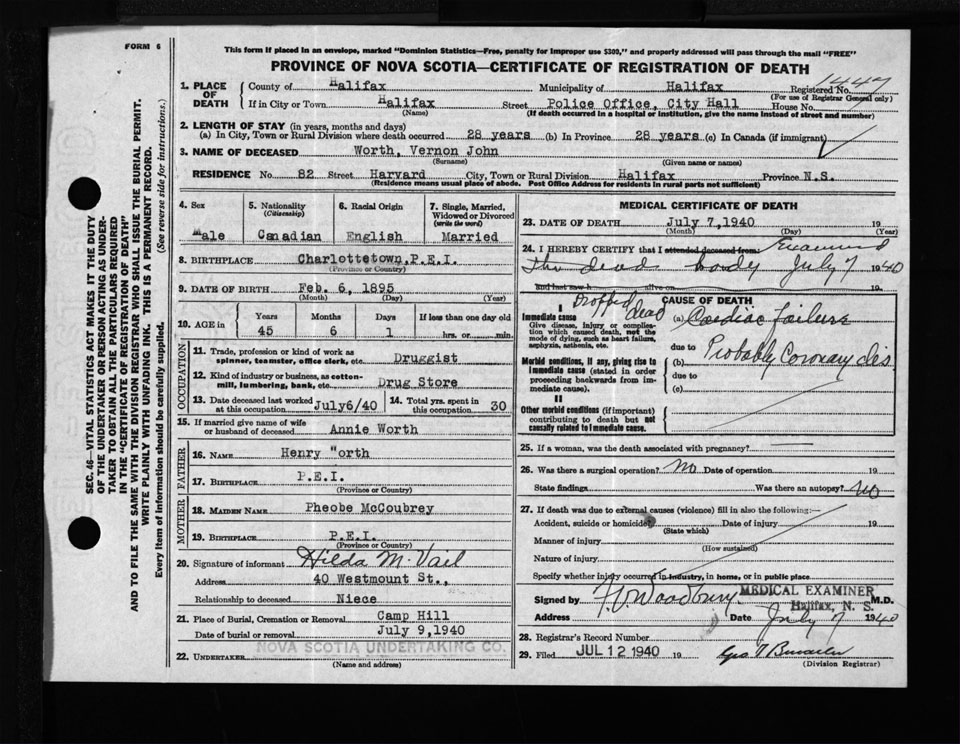 FORM 6
This form if placed in an envelope, marked "Dominion Statistics—Free, penalty for improper use $300," and properly addressed will pass through the mail "FREE"
PROVINCE OF NOVA SCOTIA—CERTIFICATE OF REGISTRATION OF DEATH
SEC. 46—VITAL STATISTICS ACT MAKES IT THE DUTY
OF THE UNDERTAKER OR PERSON ACTING AS UNDER-
TAKER TO OBTAIN ALL THE PARTICULARS REQUIRED
IN THE "CERTIFICATE OF REGISTRATION OF DEATH"
AND TO FILE THE SAME WITH THE DIVISION REGISTRAR WHO SHALL ISSUE THE BURIAL PERMIT.
WRITE PLAINLY WITH UNFADING INK. THIS IS A PERMANENT RECORD.
Every item of information should be carefully supplied. (See reverse side for instructions.)
1. PLACE OF DEATH County of Halifax Municipality of Halifax Registered No. 1447
(For use of Registrar General only)
If in City or Town Halifax Street Police Office, City Hall House No.
(Name) (If death occurred in a hospital or institution, give the name instead of street and number)
2. LENGTH OF STAY (in years, months and days)
(a) In City, Town or Rural Division where death occurred 28 years (b) In Province 28 years (c) In Canada (if immigrant)
3. NAME OF DECEASED Worth, Vernon John
(Surname) (Given name or names)
RESIDENCE No. 82 Street Harvard City, Town or Rural Division Halifax Province N.S.
(Residence means usual place of abode. Post Office Address for residents in rural parts not sufficient)
4. Sex Male
5. Nationality (Citizenship) Canadian
6. Racial Origin English
7. Single, Married, Widowed or Divorced (write the word) Married
8. BIRTHPLACE Charlottetown, P.E.I.
(Province or Country)
9. DATE OF BIRTH Feb. 6, 1895
(Month) (Day) (Year)
10. AGE in Years Months Days If less than one day old
45 6 1 hrs. or min.
OCCUPATION
11. Trade, profession or kind of work as spinner, teamster, office clerk, etc. Druggist
12. Kind of industry or business, as cotton-mill, lumbering, bank, etc. Drug Store
13. Date deceased last worked at this occupation July6/40 14. Total yrs. spent in this occupation 30
15. If married give name of wife or husband of deceased Annie Worth
FATHER
16. NAME Henry "orth
17. BIRTHPLACE P.E.I.
(Province or Country)
MOTHER
18. MAIDEN NAME Pheobe McCoubrey
19. BIRTHPLACE P.E.I.
(Province or Country)
20. Signature of informant Hilda M. Vail
Address 40 Westmount St.,
Relationship to deceased Niece
21. Place of Burial, Cremation or Removal Camp Hill
Date of burial or removal July 9, 1940
22. UNDERTAKER NOVA SCOTIA UNDERTAKING CO.
(Name and address)
MEDICAL CERTIFICATE OF DEATH
23. DATE OF DEATH July 7, 1940 19
(Month) (Day) (Year)
24. I HEREBY CERTIFY that I attended deceased from: Examined
the dead body July 7 1940
and last saw h alive on 19
CAUSE OF DEATH
I
Immediate cause dropped dead
Give disease, injury or complication which caused death, not the mode of dying, such as heart failure, asphyxia, asthenia, etc.
(a) Cardiac failure
due to
Morbid conditions, if any, giving rise to immediate cause (stated in order proceeding backwards from immediate cause).
(b) Probably Coronary dis
due to
(c)
II
Other morbid conditions (if important) contributing to death but not causally related to immediate cause.
25. If a woman, was the death associated with pregnancy?
26. Was there a surgical operation? No Date of operation 19
State findings Was there an autopsy? No
27. If death was due to external causes (violence) fill in also the following:—
Accident, suicide or homicide Date of injury 19
(State which)
Manner of injury
(How sustained)
Nature of injury
Specify whether injury occurred in industry, in home, or in public place
Signed by Woodbury MEDICAL EXAMINER M.D.
Halifax, N. S.
Address Date July 7 1940
28. Registrar's Record Number
29. Filed JUL 12 1940 19
(Division Registrar)